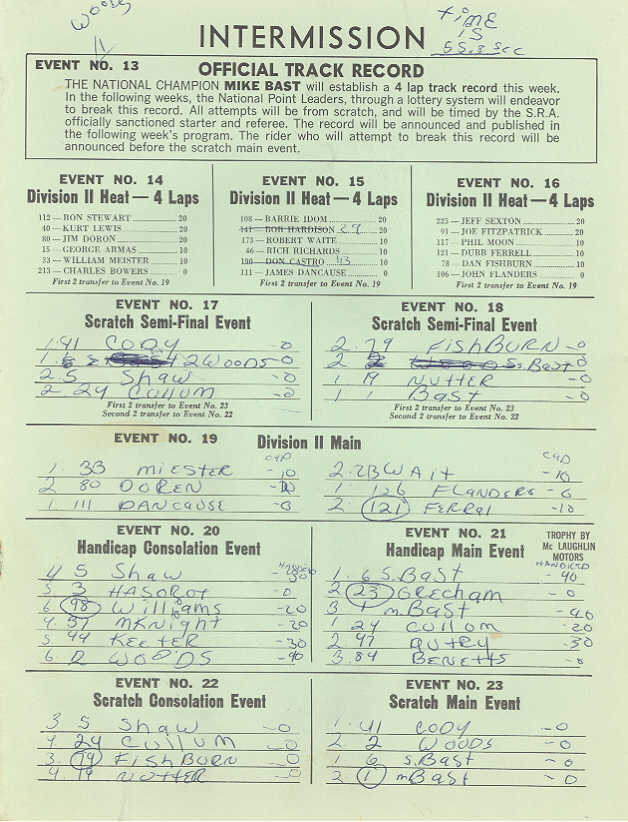 Woods
11
time
is
55.3 sec
INTERMISSION
EVENT NO. 13
OFFICIAL TRACK RECORD
THE NATIONAL CHAMPION MIKE BAST will establish a 4 lap track record this week.
In the following weeks, the National Point Leaders, through a lottery system will endeavor
to break this record. All attempts will be from scratch, and will be timed by the S.R.A.
officially sanctioned starter and referee. The record will be announced and published in
the following week's program. The rider who will attempt to break this record will be
announced before the scratch main event.
EVENT NO. 14
Division II Heat — 4 Laps
112 — RON STEWART 20
40 — KURT LEWIS 20
80 — JIM DORON 20
15 — GEORGE ARMAS 10
33 — WILLIAM MEISTER 10
213 — CHARLES BOWERS 0
First 2 transfer to Event No. 19
EVENT NO. 15
Division II Heat — 4 Laps
108 — BARRIE IDOM 20
141 — BOB HARDISON 29 20
173 — ROBERT WAITE 10
46 — RICH RICHARDS 10
190 — DON CASTRO 43 10
111 — JAMES DANCAUSE 0
First 2 transfer to Event No. 19
EVENT NO. 16
Division II Heat — 4 Laps
225 — JEFF SEXTON 20
91 — JOE FITZPATRICK 20
117 — PHIL MOON 10
121 — DUBB FERRELL 10
78 — DAN FISHBURN 0
106 — JOHN FLANDERS 0
First 2 transfer to Event No. 19
EVENT NO. 17
Scratch Semi-Final Event
1. 41 CODY -0
1. 2 WOODS -0
2. 5 Shaw -0
2. 24 Cullum -0
First 2 transfer to Event No. 23
Second 2 transfer to Event No. 22
EVENT NO. 18
Scratch Semi-Final Event
2. 79 FISHBURN -0
2 S. BAST 0
1 19 NUTTER -0
1 1 BAST -0
First 2 transfer to Event No. 23
Second 2 transfer to Event No. 22
EVENT NO. 19 Division II Main
1. 33 MIESTER -10
2 80 DOREN
1. 111 DANCAUSE -0
2. WAIT -10
1. 126 FLANDERS -0
2. 121 FERREL -10
EVENT NO. 20
Handicap Consolation Event
4 5 Shaw -30
5 3 HASOROT -0
6 98 Williams -20
4. 37 McKNight -20
5. 44 KEETER -30
6. 2 WOODS -40
EVENT NO. 21
Handicap Main Event
TROPHY BY
Mc LAUGHLIN
MOTORS
HANDICAP
1. 6 S. BAST -40
2 23 GRECHAM -0
3 1 m. BAST -40
1 24 Cullom -20
2. 47 AUTRY -30
3. 84 BENETTS -0
EVENT NO. 22
Scratch Consolation Event
3 5 Shaw -0
4. 24 Cullum -0
3. 79 FISHBURN -0
4. 19 NUTTER -0
EVENT NO. 23
Scratch Main Event
1. 41 CODY -0
2. 2 WOODS -0
1 6 S. BAST -0
2 1 m BAST -0